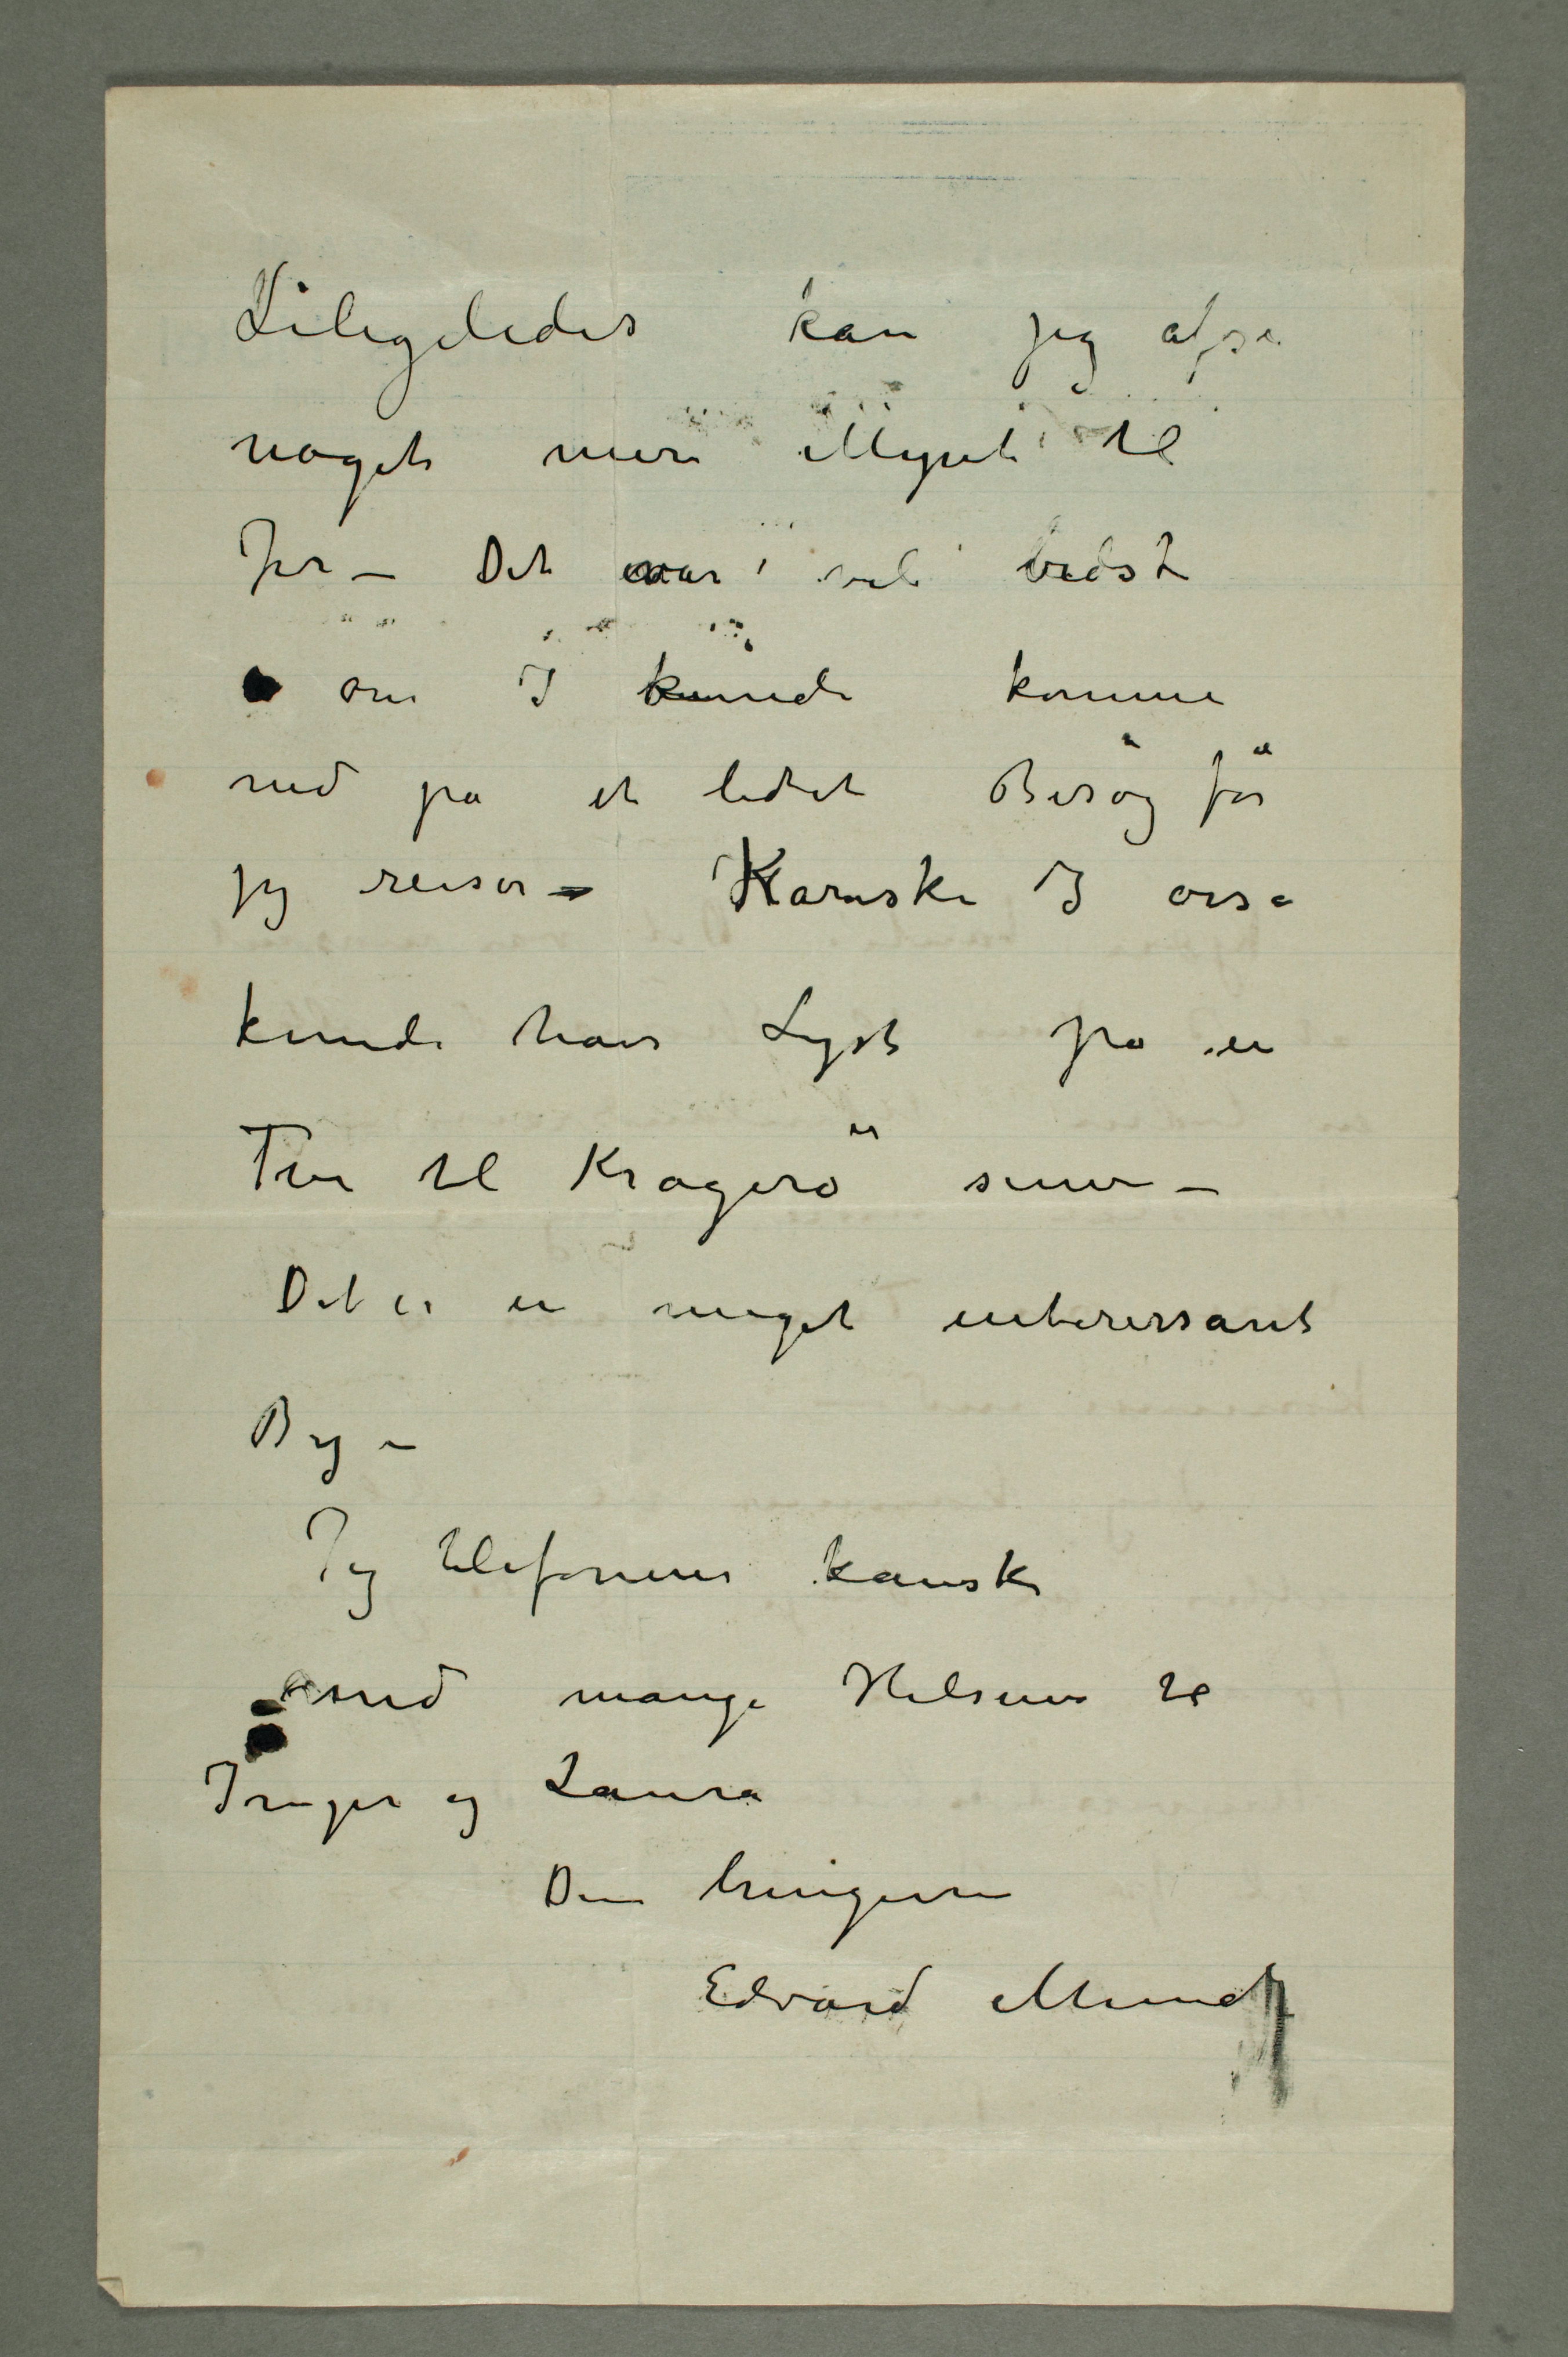 Liligeledes kan jeg afse
noget mere Mynt til
Jer – Det var vel bedst
om I kunde komme
ned på et lidet Besög för
jeg reiser – Kanske I osså
kunde have Lyst på en
Tur til Kragerö senere –
Det er en meget interessant
By –
Jeg telefonerer kanske
med mange Hilsener til
Inger og Laura
Din hengivne
Edvard Munch